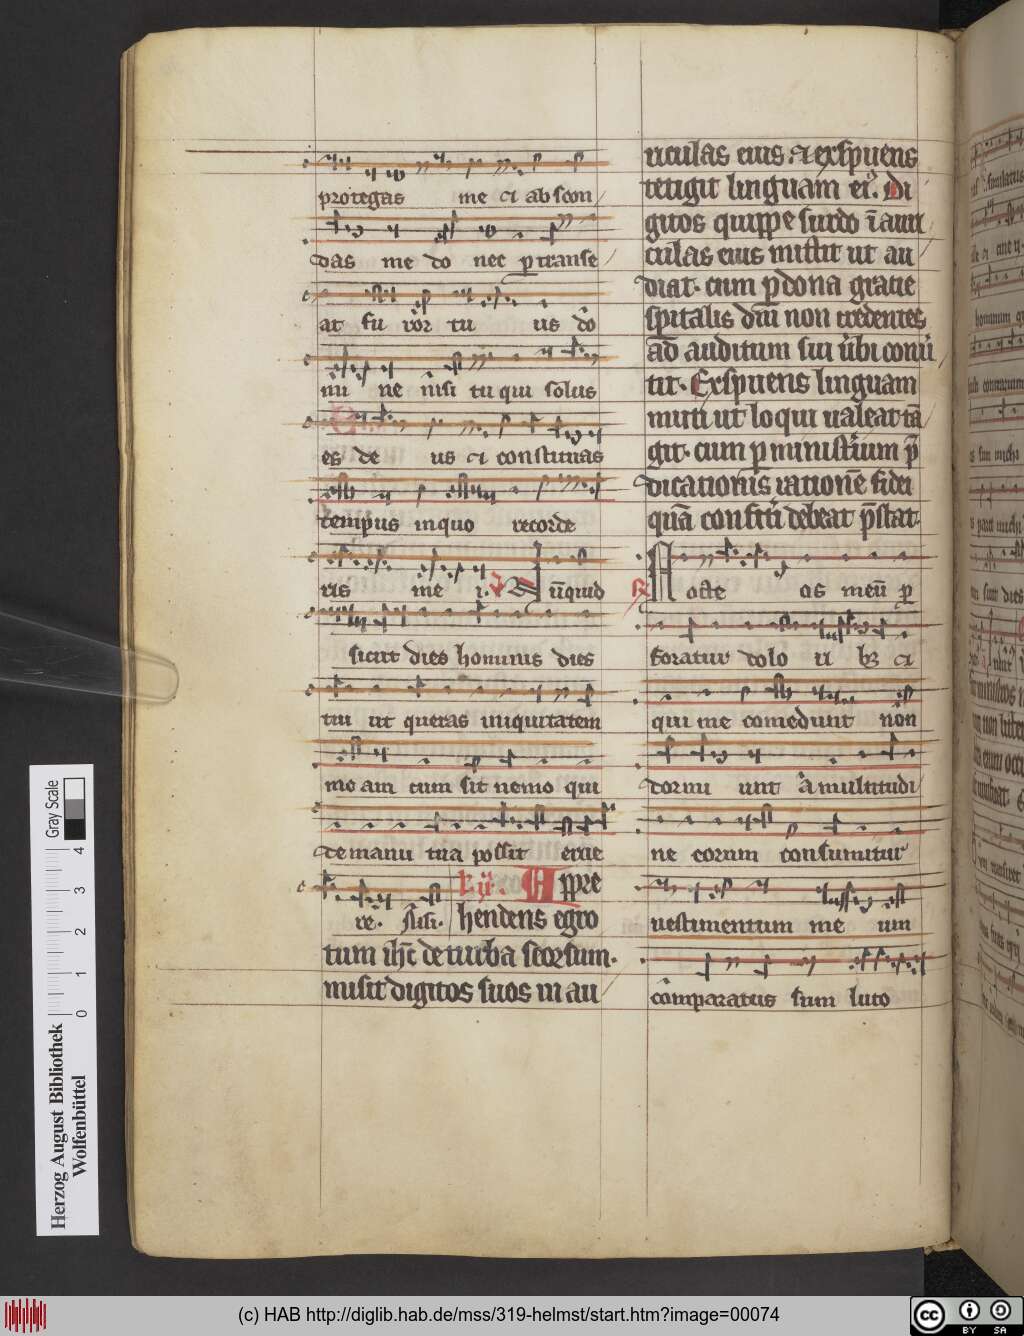 protegas me et abscon
das me donec ptranse
at furor tuus do
mine nisi tu qui solus
es deus et constituas
tempus inquo recorde
ris mei. V Nūquid
sicut dies hominis dies
tui ut queras iniquitatem
meam cum sit nemo qui
demanu tua possit erue
re. Appre
hendens egro
tum ihc deturba seorsum.
misit digitos suos in au
riculas eius et exspuens
tetigit linguam ei9. Di
gitos quippe surdo ī auri
culas eius mittit ut au
diat. cum p dona gratie
spitalis diu non credentes
ad auditum sui ūbi conū
tit. Exspuens linguam
muti ut loqui ualeat tā
git. cum p ministīum p̄
dicationis rationē fidei
quā confitī debeat p̄stat.
Nocte os meū p
foratur dolo et
qui me comedunt non
dormiunt A multitudi
ne eorum consumitur
uestimentum meum
comparatus sum luto
Gray Scale
4
3
2
1
0
Herzog August Bibliothek
Wolfenbüttel
(c) HAB http://diglib.hab.de/mss/319-helmst/start.htm?image=00074
cc BY SA